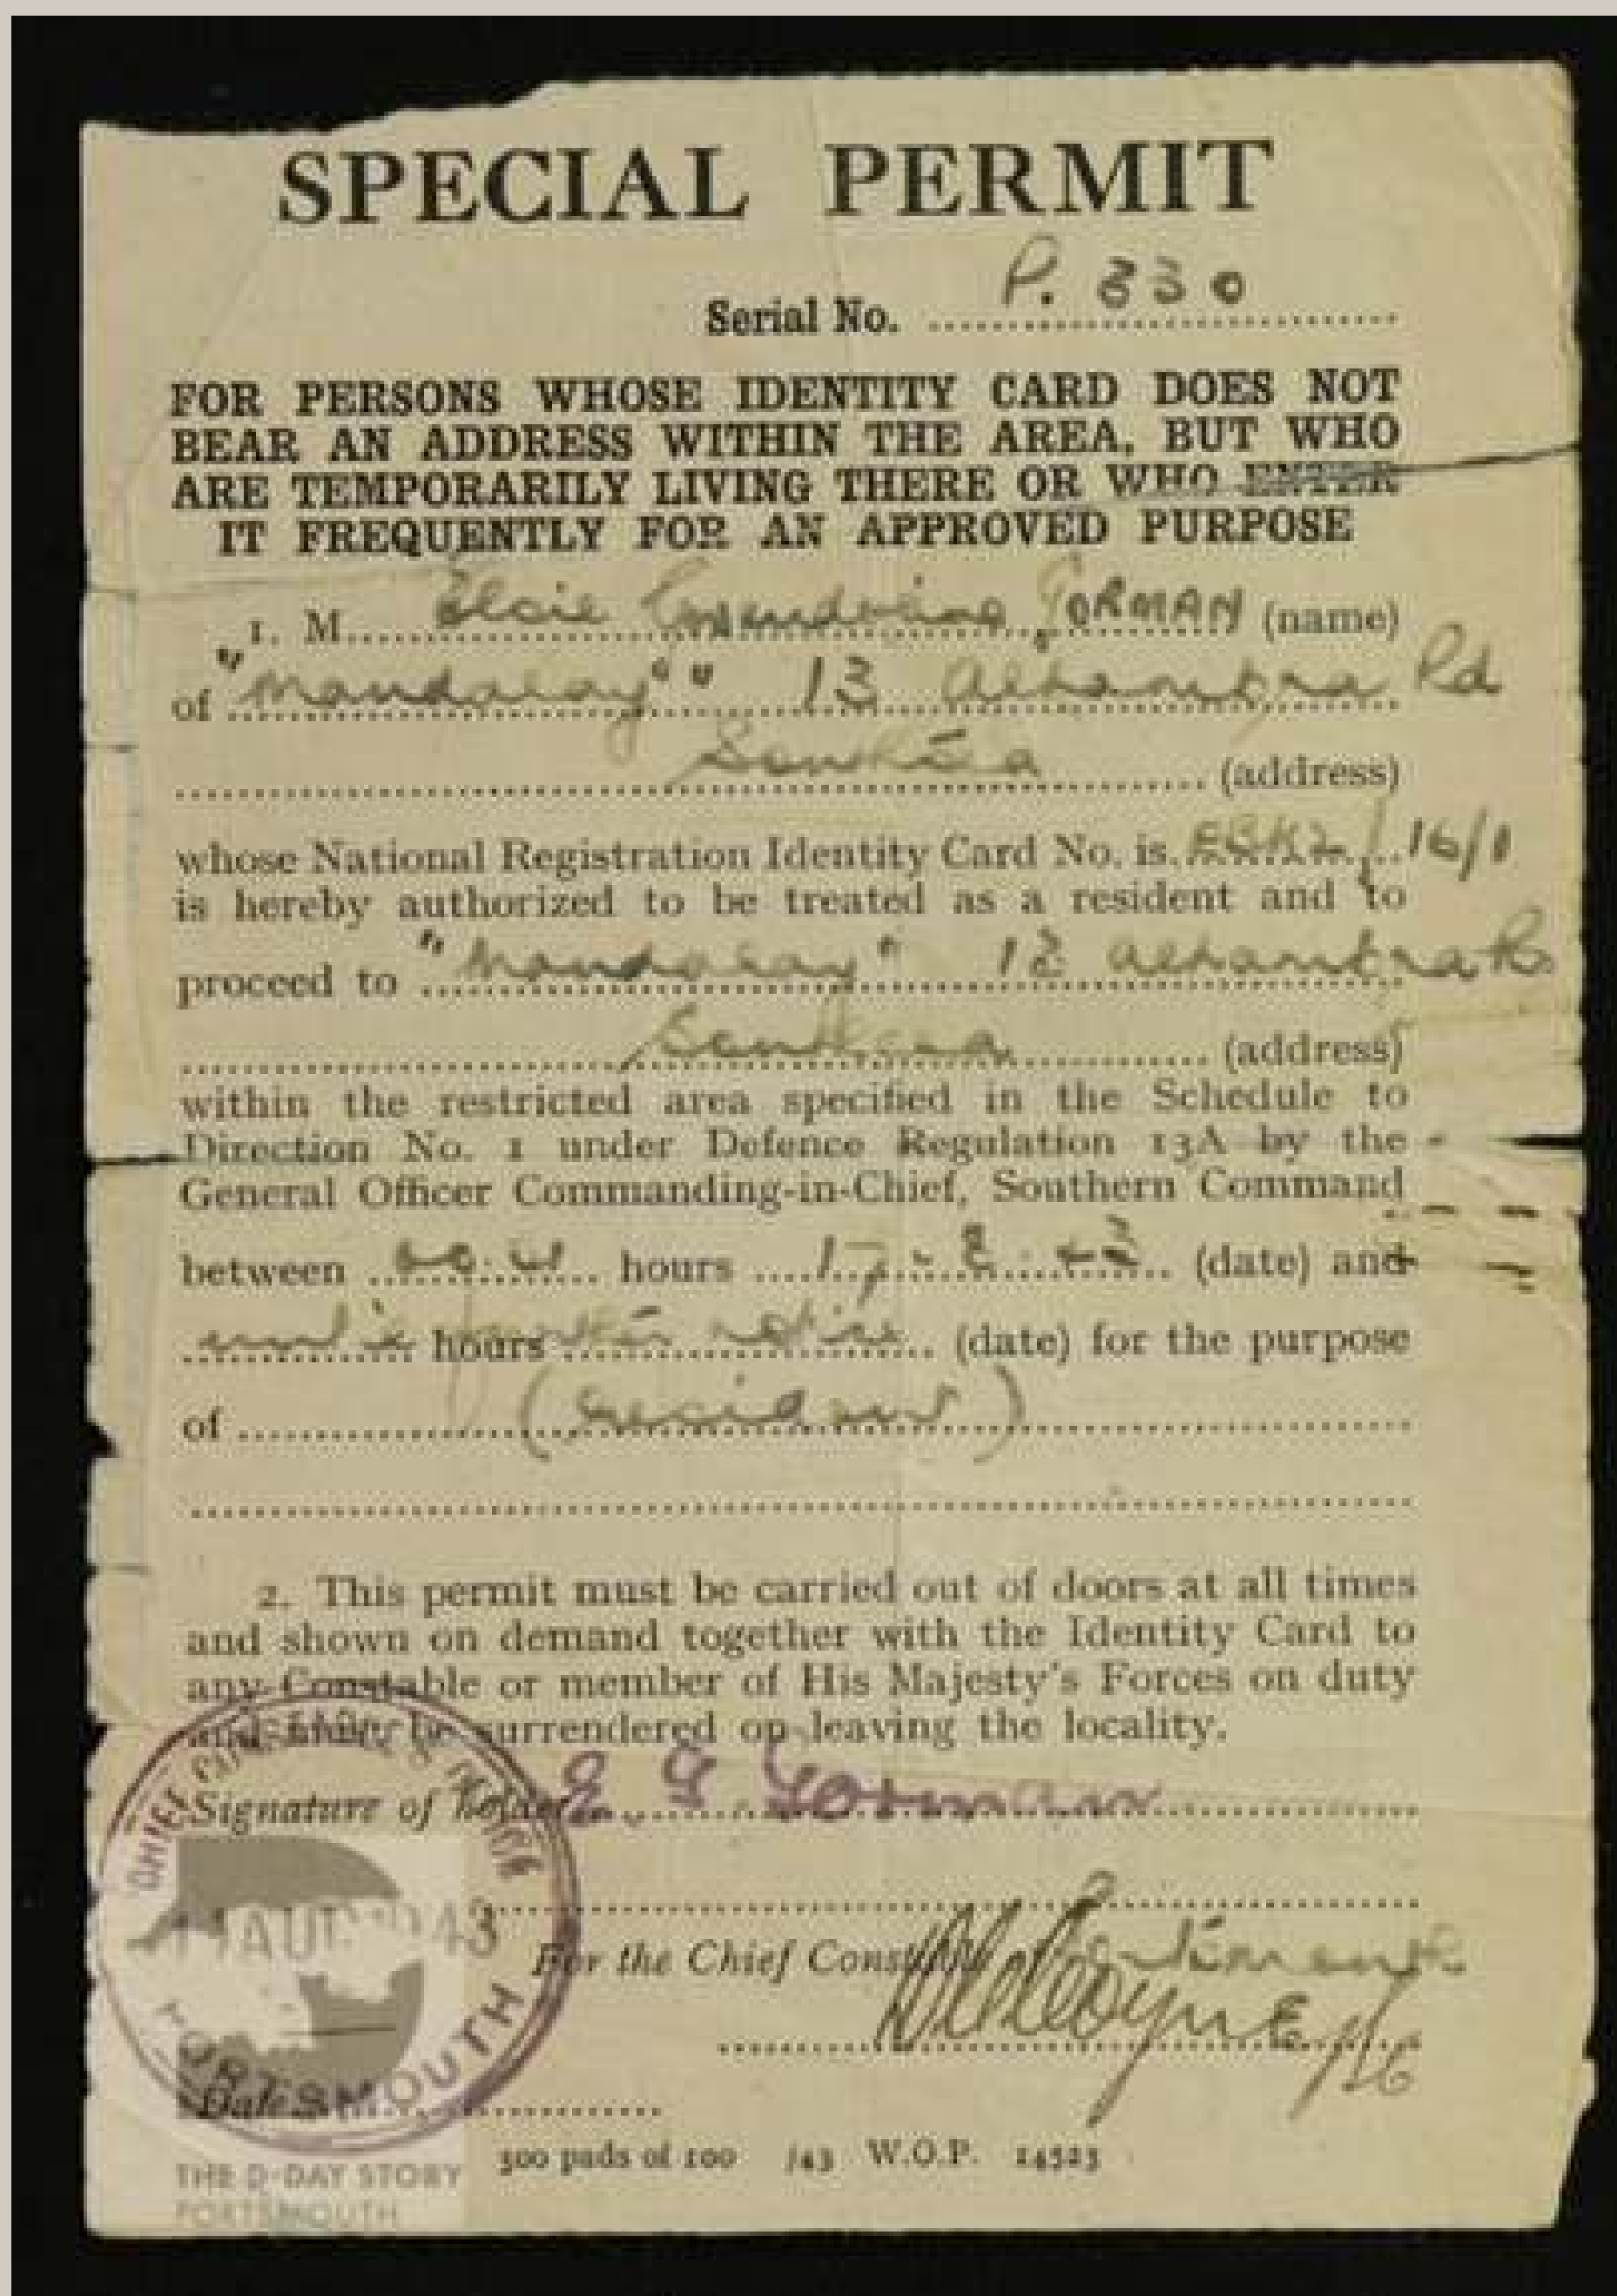 SPECIAL PERMIT
Serial No. P. 330
FOR PERSONS WHOSE IDENTITY CARD DOES NOT
BEAR AN ADDRESS WITHIN THE AREA, BUT WHO
ARE TEMPORARILY LIVING THERE OR WHO ENTER
IT FREQUENTLY FOR AN APPROVED PURPOSE
1. M Elsie Gwendoline GORMAN (name)
of "Mandalay" 13 Alhambra Rd
Southsea (address)
whose National Registration Identity Card No. is EBKL 16/1
is hereby authorized to be treated as a resident and to
proceed to "Mandalay" 13 Alhambra Rd
Southsea (address)
within the restricted area specified in the Schedule to
Direction No. 1 under Defence Regulation 13A by the
General Officer Commanding-in-Chief, Southern Command
between hours 17 - 8 - 43 (date) and
until hours further notice (date) for the purpose
of (resident)
2. This permit must be carried out of doors at all times
and shown on demand together with the Identity Card to
any Constable or member of His Majesty's Forces on duty
and must be surrendered on leaving the locality.
Signature of holder E G Gorman
CHIEF CONSTABLE'S OFFICE
AUG 1943
PORTSMOUTH
For the Chief Constable of Portsmouth
Date
300 pads of 100 /43 W.O.P. 14523
THE D-DAY STORY
PORTSMOUTH